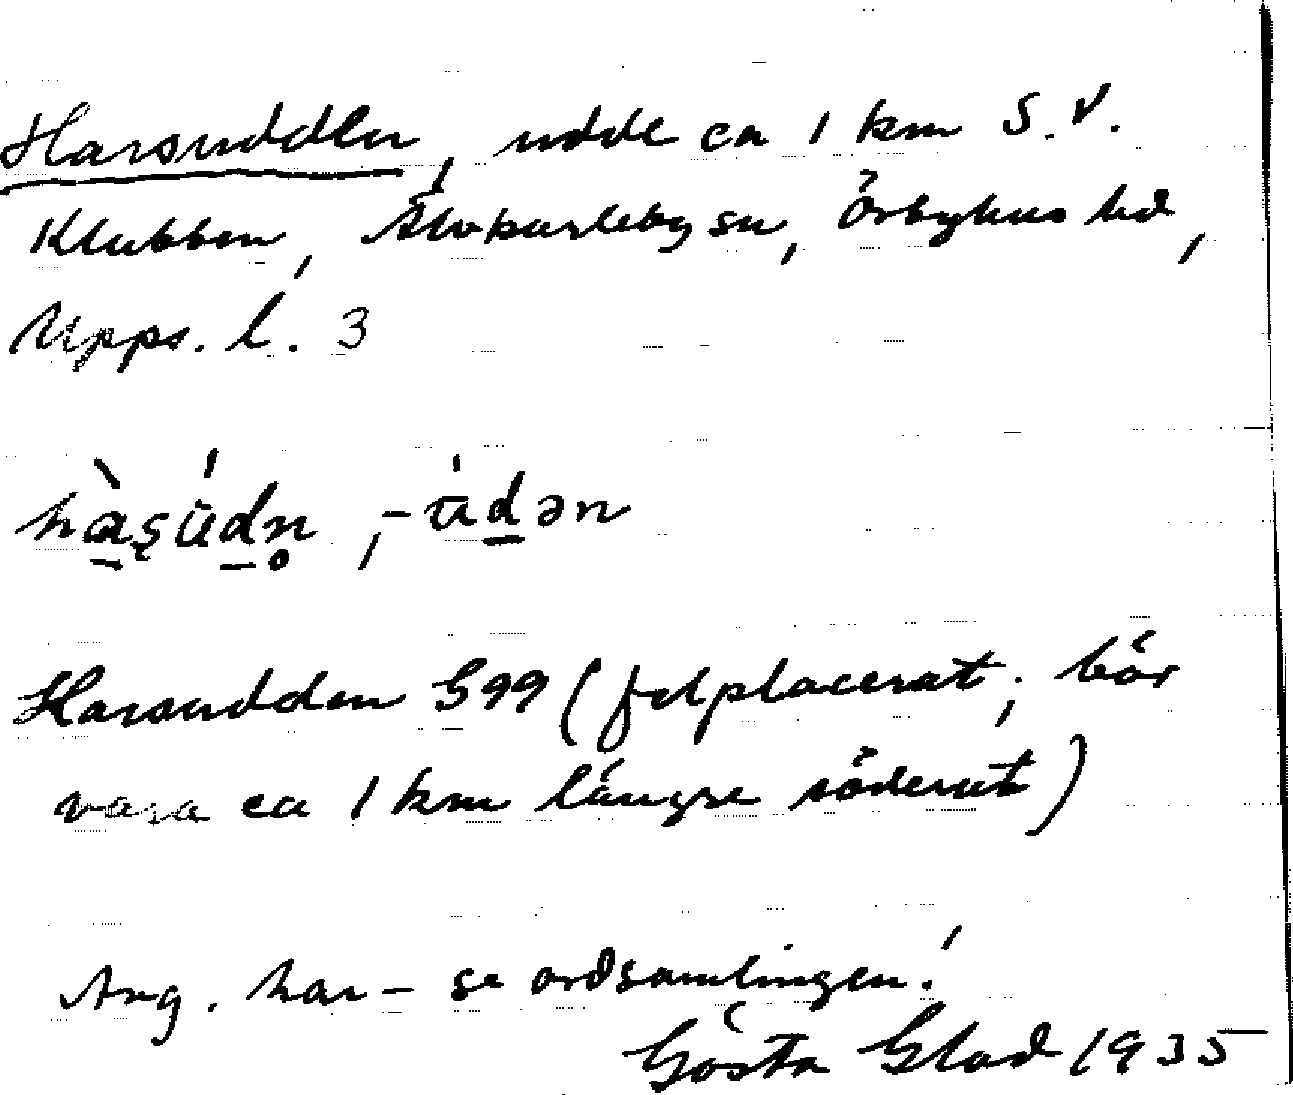 Harsudden, udde ca 1 km S.V.
Klubben, Älvkarleby sn, Örbyhus hd,
Upps. l. 3
hàşúdn̥, -údən
Harsudden G99 (felplacerat; bör
vara ca 1 km längre söderut)
Ang. har- se ordsamlingen!
Gösta Glad 1935